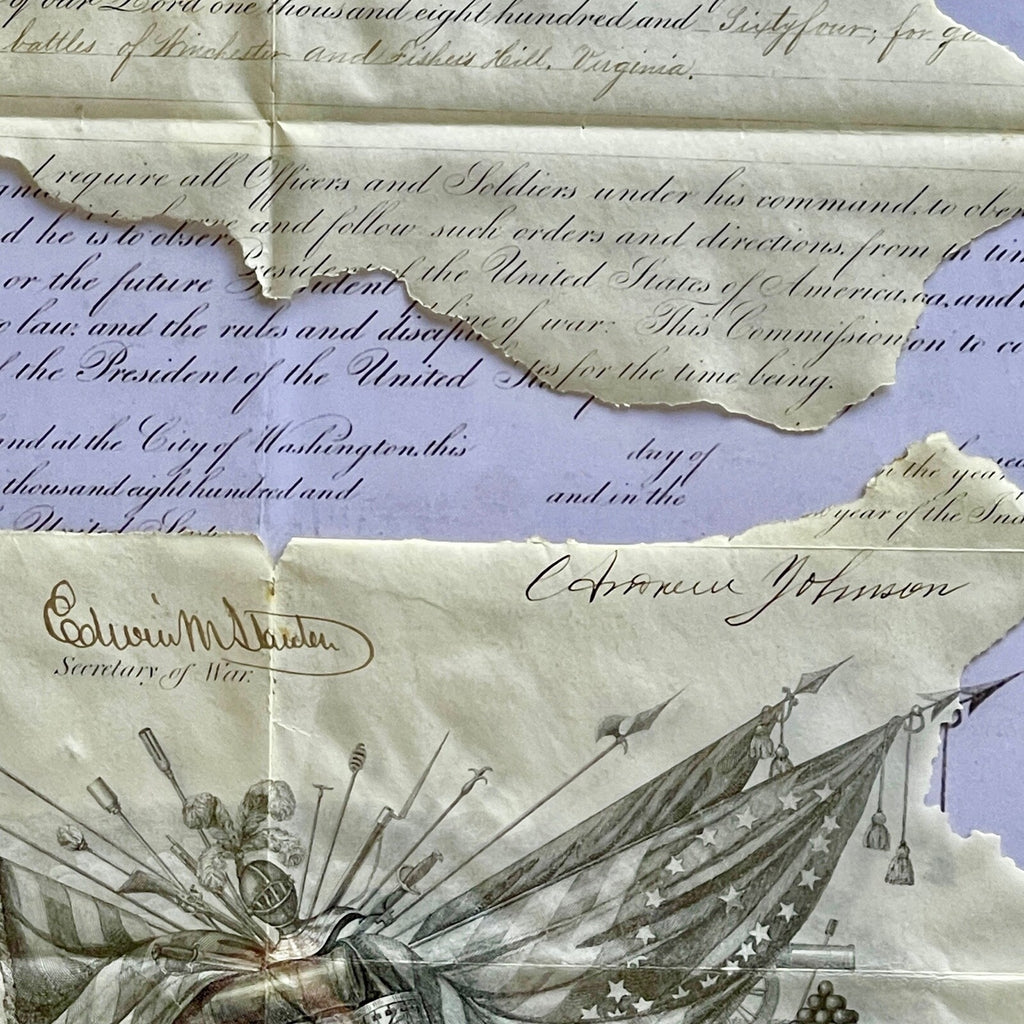 of our Lord one thousand eight hundred and Sixtyfour, for ga
battles of Winchester and Fishers Hill, Virginia.
I require all Officers and Soldiers under his command, to obe
d he is to observe and follow such orders and directions, from in tim
or the future President of the United States of America, and
o law; and the rules and discipline of war: This Commission to co
f the President of the United States for the time being.
and at the City of Washington, this day of
thousand eight hundred and and in the in the year
year of the Ind
United States
Edwin M Stanton
Andrew Johnson
Secretary of War.